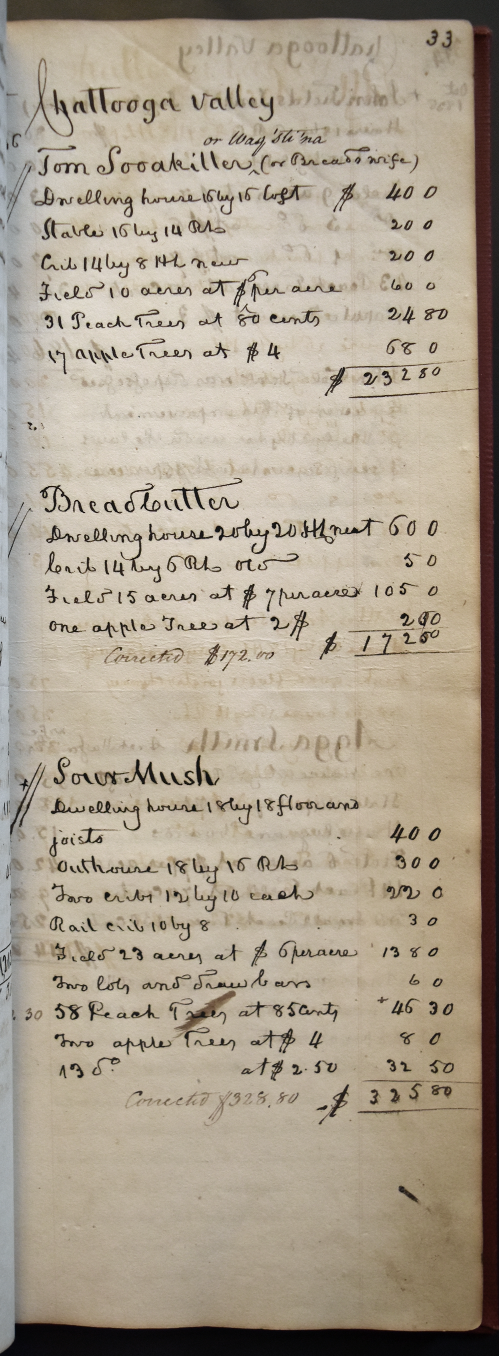 33
Chattooga Valley
or Wag'sti'na
Tom Sooakiller, (or Breads wife)
Dwelling house 16 by 16 loft $ 40 0
Stable 16 by 14 Rh 20 0
Crib 14 by 8 Hh new 20 0
Field 10 acres at $6 per acre 60 0
31 Peach Trees at 80 cents 24 80
17 apple Trees at $4 68 0
$ 232 80
Bread Cutter
Dwelling house 20 by 20 Hh neat 60 0
Crib 14 by 6 Rh old 5 0
Field 15 acres at $ 7 per acre 105 0
one apple Tree at 2$ 2 00
Corrected $172.00 $ 172 50
Sour Mush
Dwelling house 18 by 18 floor and
joists 40 0
Outhouse 18 by 16 Rh 30 0
Two cribs 12 by 10 each 22 0
Rail crib 10 by 8 3 0
Field 23 acres at $ 6 per acre 138 0
Two lots and draw bars 6 0
30 58 Peach Trees at 85 Cents + 46 30
Two apple Trees at $ 4 8 0
13 do at $ 2.50 32 50
Corrected $328.80 $ 325 80